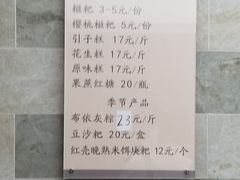 糍粑 3-5元/份
樱桃糍粑 5元/份
引子糕 17元/斤
花生糕 17元/斤
原味糕 17元/斤
果蔗红糖 20/瓶
季节产品
布依灰粽 23元/斤
豆沙粑 20元/盒
红壳晚熟米饵块粑 12元/个